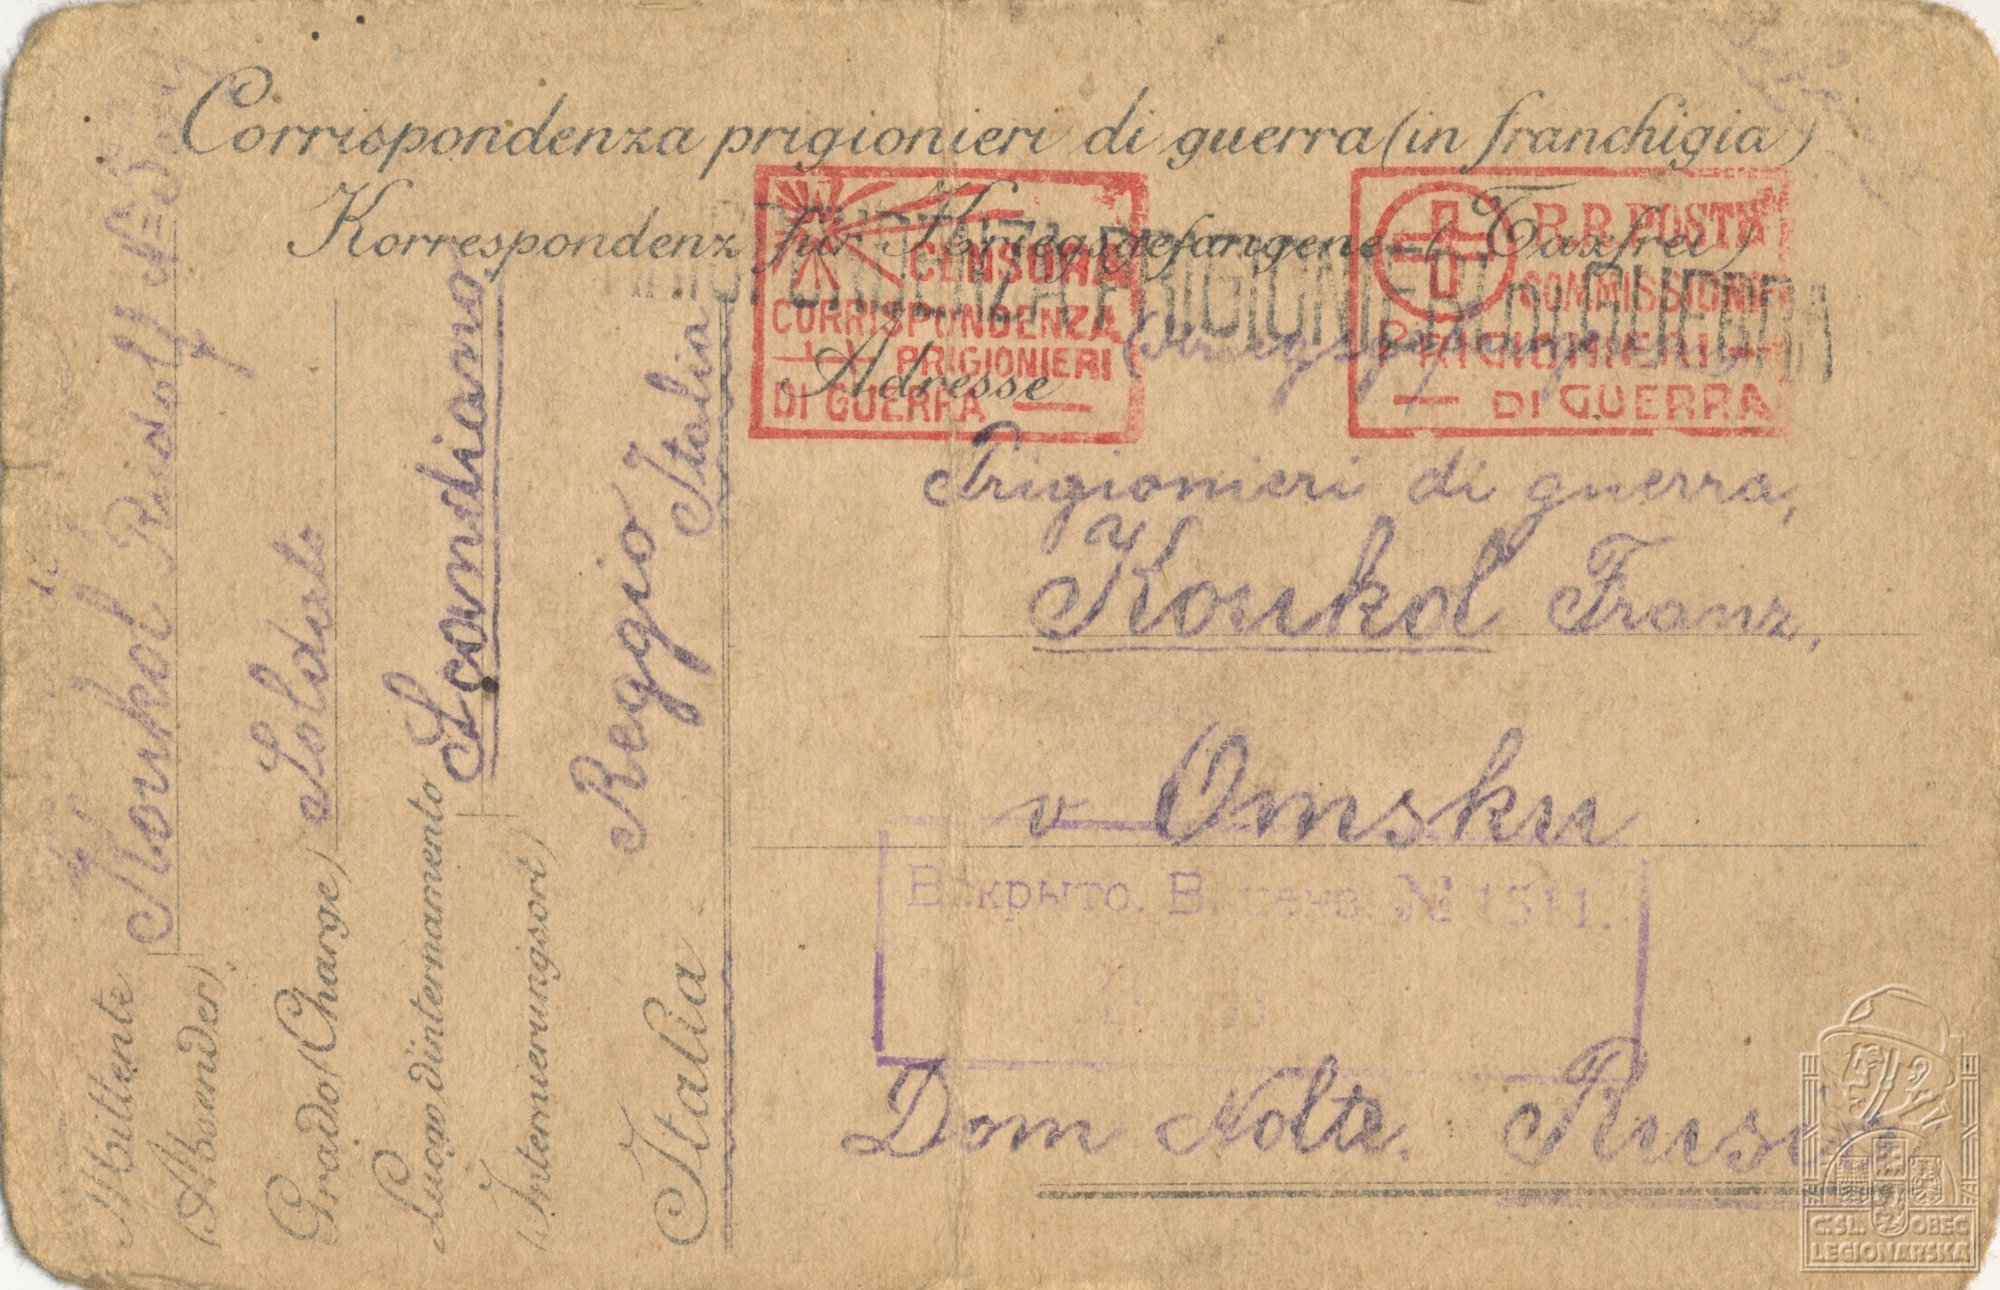 Corrispondenza prigionieri di guerra (in franchigia)
Korrespondenz für Kriegsgefangene (Taxfrei)
CORRISPONDENZA PRIGIONIERI DI GUERRA
CENSURA
CORRISPONDENZA
PRIGIONIERI
DI GUERRA
R.R. POSTE
COMMISSIONE
PRIGIONIERI
DI GUERRA
Adresse
(Kriegsgefangene
Prigionieri di guerra,
Koukol Franz,
v Omsku
Вскрыто. В. ценз. № 1511.
Dom Nolte.
Mittente Koukol Rudolf
(Absender)
Grado (Charge) Soldato
Luogo d'internamento Scandiano
(Internierungsort)
Reggio
Italia
Italia
Č:SL. OBEC
LEGIONÁŘSKÁ